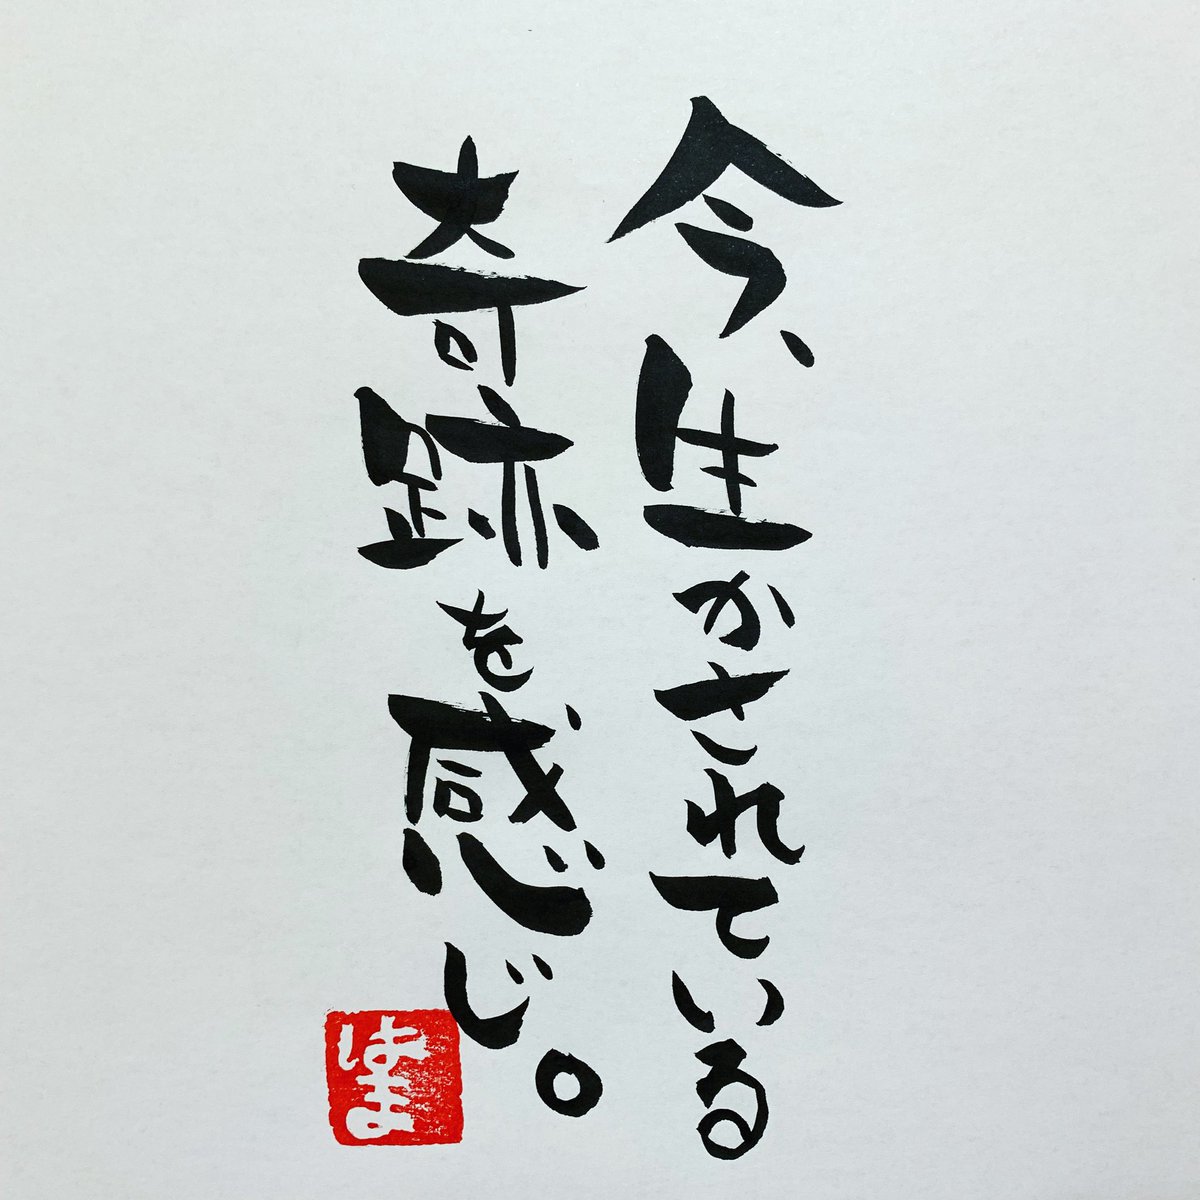 今、生かされている
奇跡を感じ。
はまよ